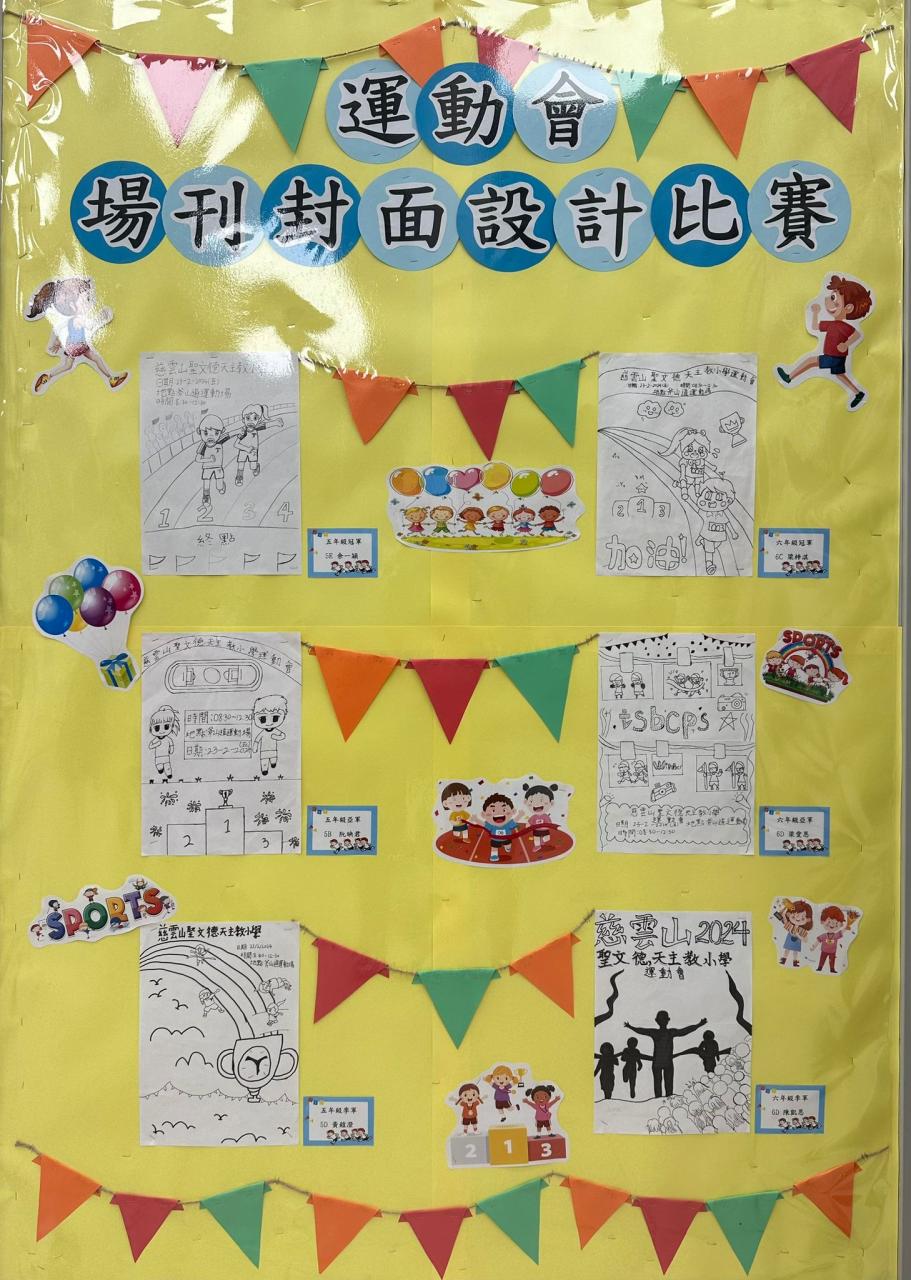 運動會
場刊封面設計比賽
慈雲山聖文德天主教小
日期23-2-2024(五)
地點斧山道運動場
時間8:30-12:30
1 2 3 4
終點
五年級冠軍
5E 余一穎
慈雲山聖文德天主教小學運動會
2 1 3
加油!
六年級冠軍
6C 梁梓淇
SPORTS
慈雲山聖文德天主教小學運動會
時間:0830~12:30
地點:斧山道運動場
日期:23-2-2024
(五)
2 1 3
五年級亞軍
5B 阮映君
tsbcps
Winner
慈雲山聖文德天主教小學
時間:0830-12:30
六年級亞軍
6D 梁愛恩
SPORTS
慈雲山聖文德天主教小學
地點:斧山道運動場
五年級季軍
慈雲山2024
聖文德天主教小學
運動會
六年級季軍
6D 陳凱恩
2 1 3